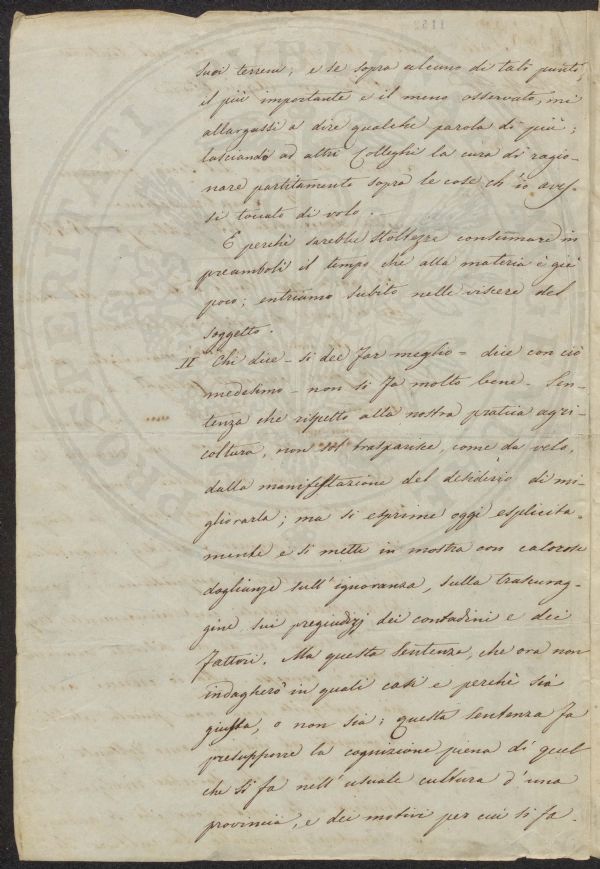 suoi terreni; e se sopra alcuno di tali punti,
il più importante e il meno osservato, mi
allargassi a dire qualche parola di più;
lasciando ad altri Colleghi la cura di ragio-
nare partitamente sopra le cose ch'io aves-
si toccato di volo.
E perchè sarebbe stoltezza consumare in
preamboli il tempo che alla materia è già
poco; entriamo subito nelle viscere del
soggetto.
II Chi dice - si dee far meglio - dice con ciò
medesimo - non si fa molto bene. Sen-
tenza che rispetto alla nostra pratica agri-
coltura, non sol trasparisce, come da velo,
dalla manifestazione del desiderio di mi-
gliorarla; ma si esprime oggi esplicita-
mente e si mette in mostra con calorose
doglianze sull'ignoranza, sulla trascurag-
gine sui pregiudizj dei contadini e dei
fattori. Ma questa sentenza, che ora non
indagherò in quali casi e perchè sia
giusta, o non sia; questa sentenza fa
presupporre la cognizione piena di quel
che si fa nell'usuale cultura d'una
provincia, e dei motivi per cui si fa.
PROSPERITATI